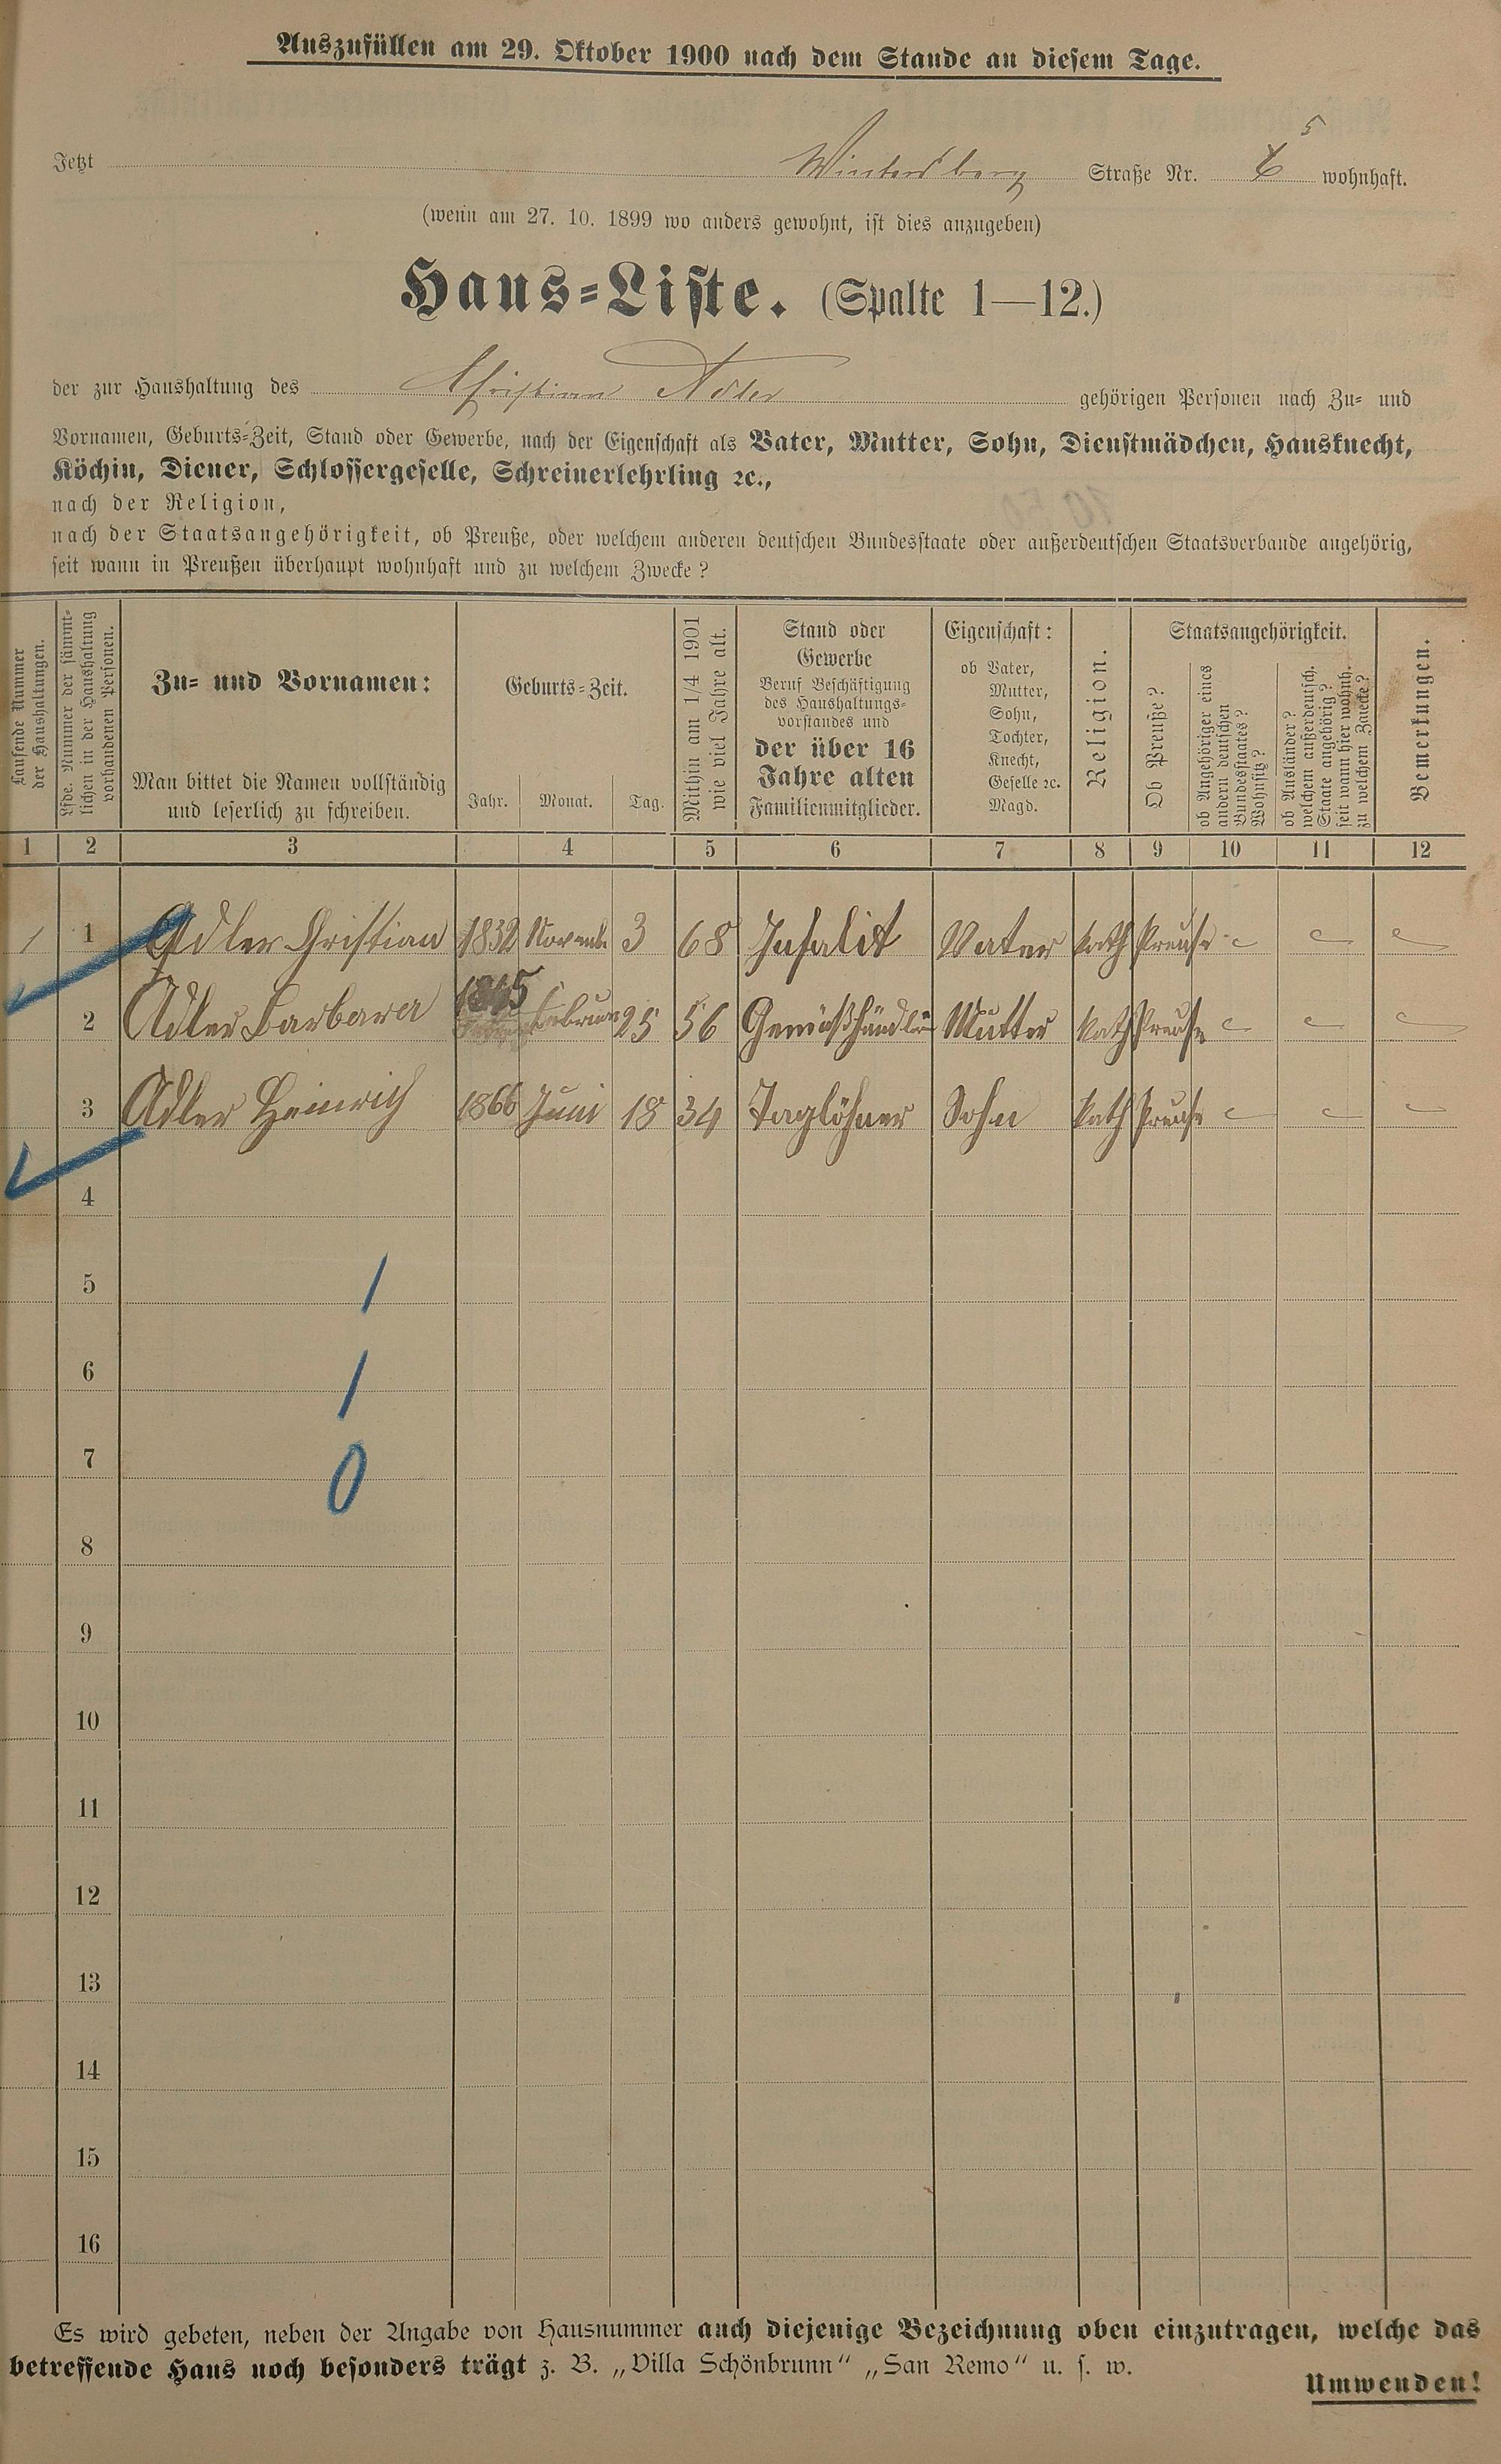 Auszufüllen am 29. Oktober 1900 nach dem Stande an diesem Tage.
5
Jetzt Wintersberg Straße Nr. 6 wohnhaft.
(wenn am 27. 10. 1899 wo anders gewohnt, ist dies anzugeben)
Haus-Liste. (Spalte 1—12.)
der zur Haushaltung des Christian Adler gehörigen Personen nach Zu- und
Vornamen, Geburts-Zeit, Stand oder Gewerbe, nach der Eigenschaft als Vater, Mutter, Sohn, Dienstmädchen, Hausknecht,
Köchin, Diener, Schlossergeselle, Schreinerlehrling ꝛc.,
nach der Religion,
nach der Staatsangehörigkeit, ob Preuße, oder welchem anderen deutschen Bundesstaate oder außerdeutschen Staatsverbande angehörig,
seit wann in Preußen überhaupt wohnhaft und zu welchem Zwecke?
Laufende Nummer
der Haushaltungen.
Lfde. Nummer der sämmt-
lichen in der Haushaltung
vorhandenen Personen.
Zu- und Vornamen:
Man bittet die Namen vollständig
und leserlich zu schreiben.
Geburts-Zeit.
Jahr. Monat. Tag.
Mithin am 1/4 1901
wie viel Jahre alt.
Stand oder
Gewerbe
Beruf Beschäftigung
des Haushaltungs-
vorstandes und
der über 16
Jahre alten
Familienmitglieder.
Eigenschaft:
ob Vater,
Mutter,
Sohn,
Tochter,
Knecht,
Geselle ꝛc.
Magd.
Religion.
Staatsangehörigkeit.
Ob Preuße?
ob Angehöriger eines
andern deutschen
Bundesstaates?
Wohnsitz?
ob Ausländer?
welchem außerdeutsch.
Staate angehörig?
seit wann hier wohnh.
zu welchem Zwecke?
Bemerkungen.
1 2 3 4 5 6 7 8 9 10 11 12
1 1 Adler Christian 1832 Novemb. 3 68 Infalit Vater kath Preuße
2 Adler Barbara 1845 Februar 25 56 Gemüßhändlin Mutter kath Preuße
3 Adler Heinrich 1866 Juni 18 34 Taglöhner Sohn kath Preuße
4
5 1
6 1
7 0
8
9
10
11
12
13
14
15
16
Es wird gebeten, neben der Angabe von Hausnummer auch diejenige Bezeichnung oben einzutragen, welche das
betreffende Haus noch besonders trägt z. B. „Villa Schönbrunn“ „San Remo“ u. s. w.
Umwenden!